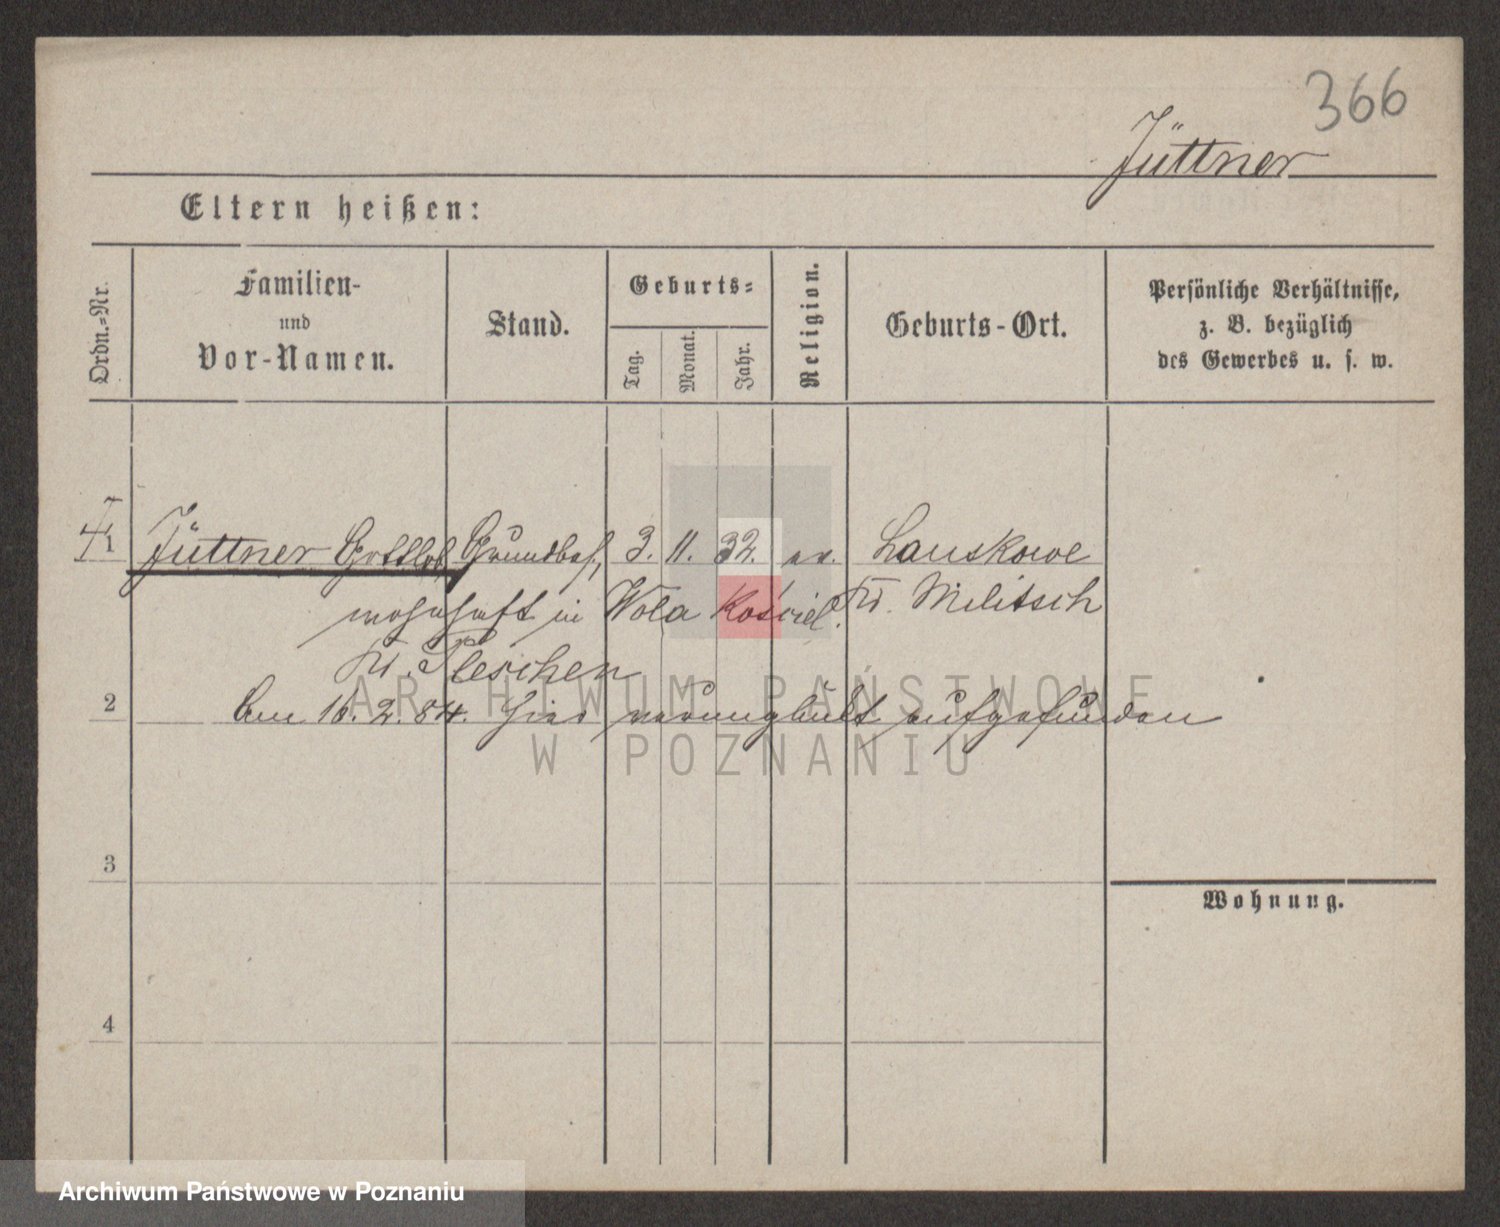 366
Jüttner
Eltern heißen:
Ordn.=Nr.
Familien-
und
Vor-Namen.
Stand.
Geburts=
Tag.
Monat.
Jahr.
Religion.
Geburts-Ort.
Persönliche Verhältnisse,
z. B. bezüglich
des Gewerbes u. s. w.
1 Jüttner Gottlob Grundbes., 3. 11. 32. ev. Lauskowe
wohnhaft in Wola Kościel. Kr. Militsch
Kr. Pleschen
2 Am 16. 2. 84. hier verunglückt aufgefunden
ARCHIWUM PAŃSTWOWE
W POZNANIU
3
Wohnung.
4
Archiwum Państwowe w Poznaniu